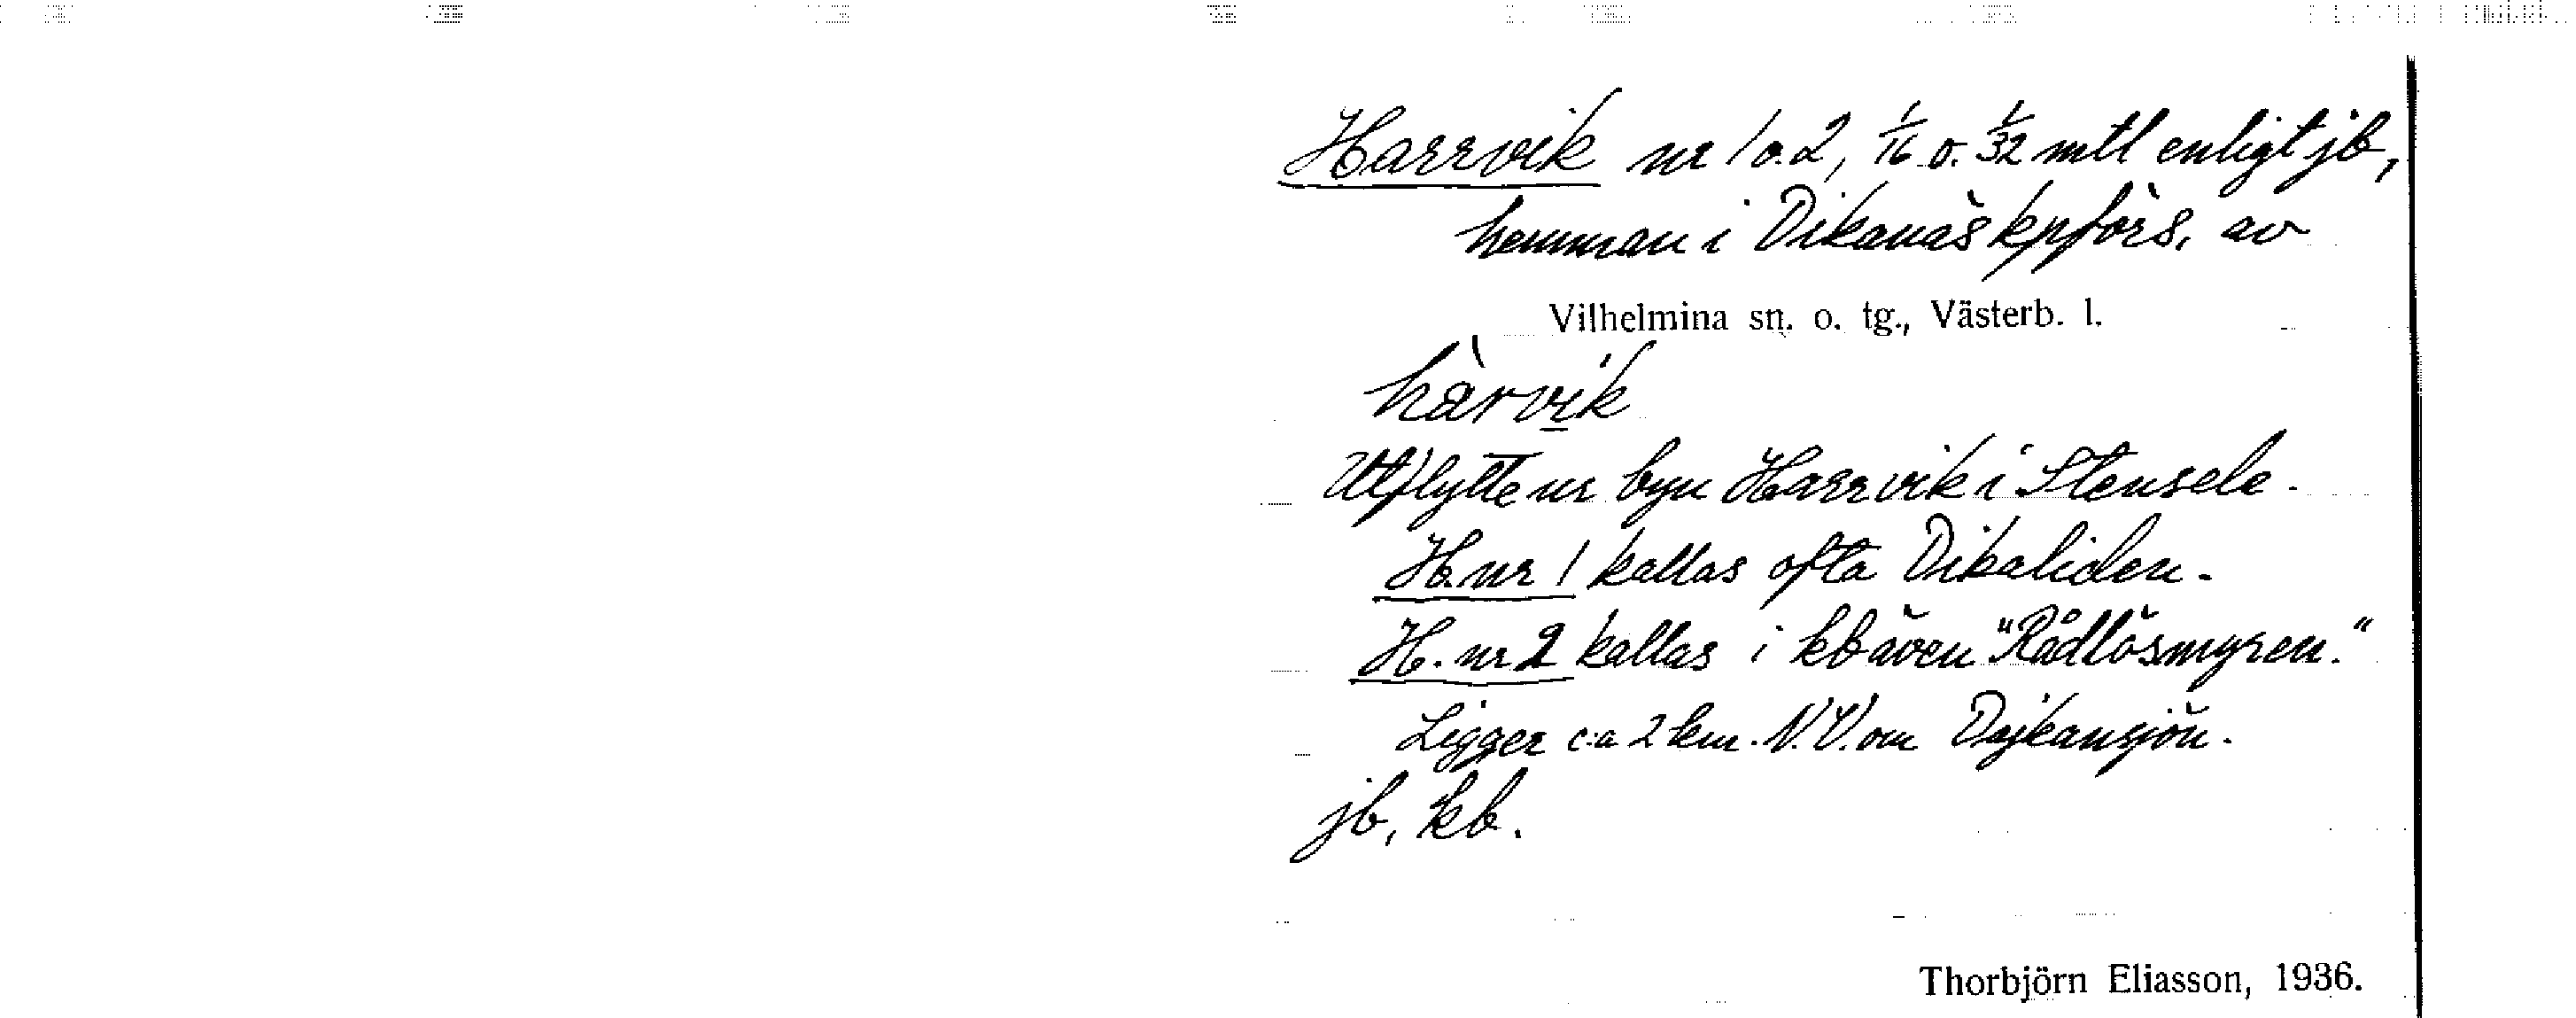 Harrvik nr 1 o. 2, 1/16 o. 1/32 mtl enligt jb,
hemman i Dikanäs kpförs. av
Vilhelmina sn. o. tg., Västerb. l.
hàrvik
Utflytte ur byn Harrvik i Stensele.
H. nr 1 kallas ofta Dikaliden.
H. nr 2 kallas i kb även "Rådlösmyren."
Ligger c:a 2 km. N.V. om Dajkansjön.
jb, kb.
Thorbjörn Eliasson, 1936.